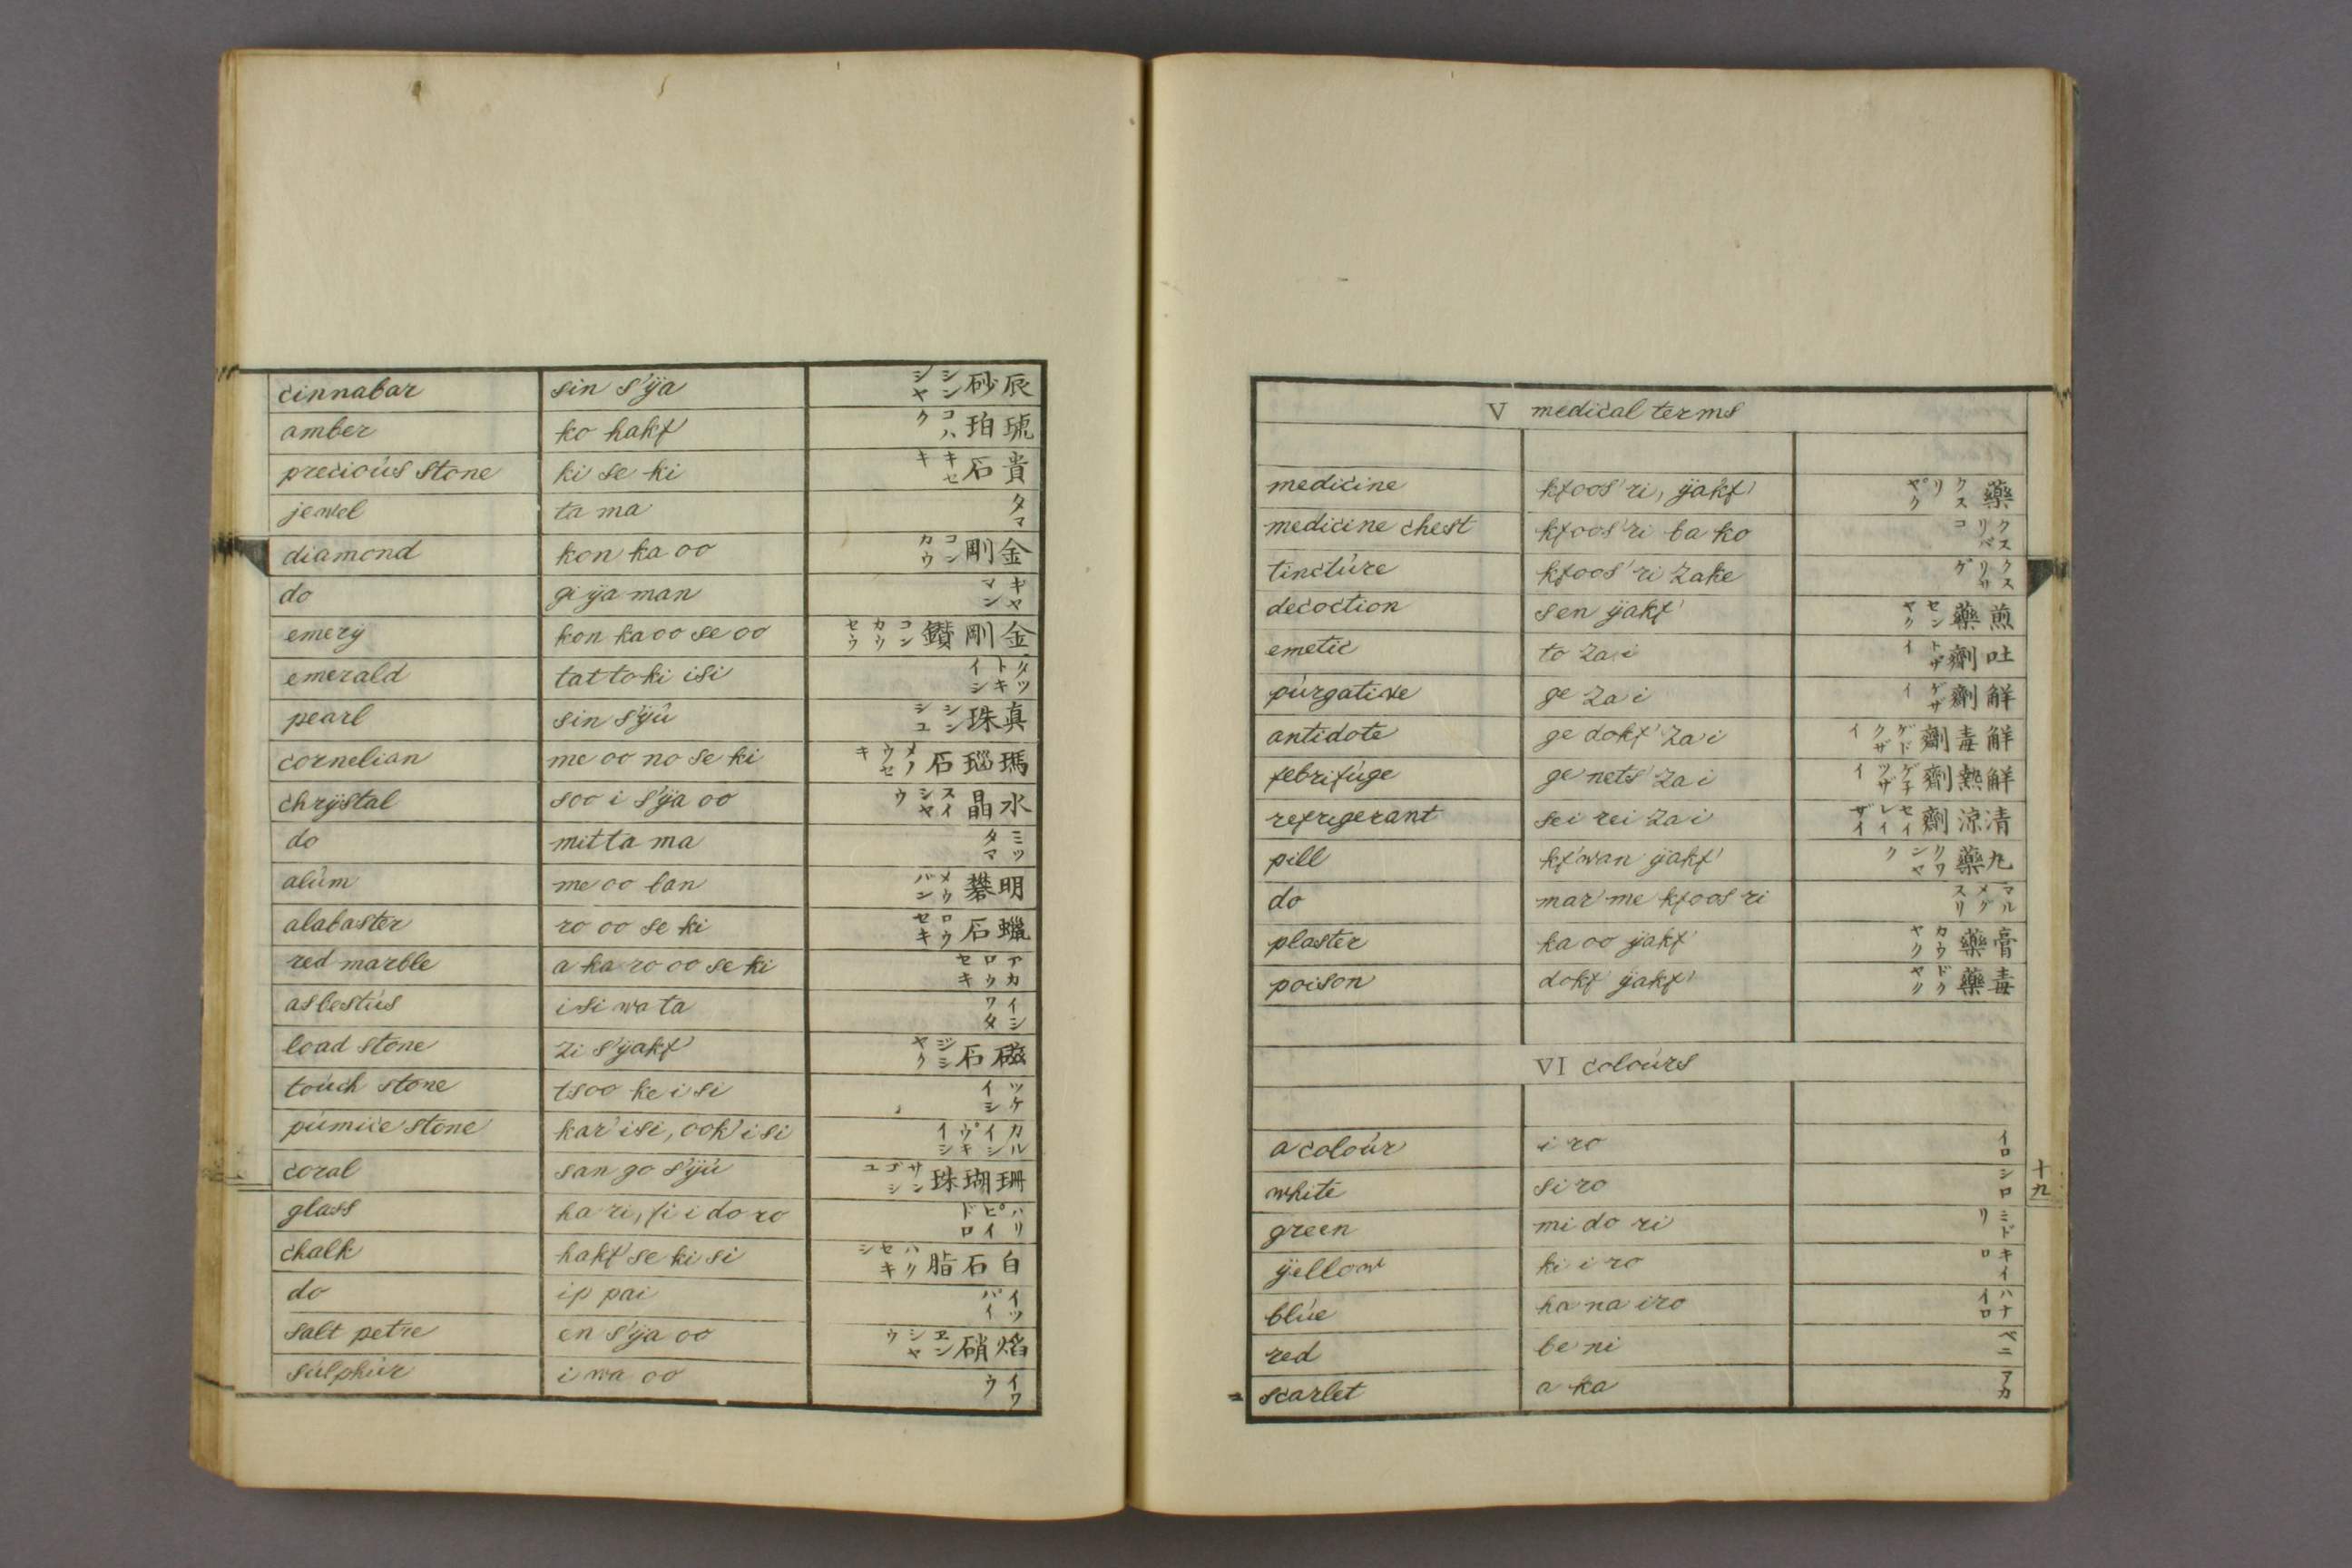 cinnabar sin s'ÿa 辰砂 シンシヤ
amber ko hakf 琥珀 コハク
precioús stone ki se ki 貴石 キセキ
jewel ta ma タマ
diamond kon ka oo 金剛 コンカウ
do gi ÿa man キヤマン
emery kon ka oo se oo 金剛鑚 コンカウセウ
emerald tat to ki isi タツトキイシ
pearl sin s'ÿú 真珠 シンシユ
cornelian me oo no se ki 瑪瑙石 メウノセキ
chrÿstal soo i s'ÿa oo 水晶 スイシヤウ
do mit ta ma ミツタマ
alúm me oo ban 明礬 メウバン
alabaster ro oo se ki 蠟石 ロウセキ
red marble a ka ro oo se ki アカロウセキ
asbestús isi wa ta イシワタ
load stone zi s'ÿakf' 磁石 ジシヤク
toúch stone tsoo ke i si ツケイシ
púmice stone kar' isi, ook' i si カルイシウキイシ
coral san go s'ÿú 珊瑚珠 サンゴシユ
glass ha ri, fi i do ro ハリピイドロ
chalk hakf' se ki si 白石脂 ハクセキシ
do ip pai イツパイ
salt petre en s'ÿa oo 焰硝 ヱンシヤウ
súlphúr i wa oo イワウ
V medical terms
medicine kfoos' ri, ÿakf' 藥 クスリヤク
medicine chest kfoos' ri ba ko クスリバコ
tinctúre kfoos' ri zake クスリサゲ
decoction sen ÿakf' 煎藥 センヤク
emetic to za i 吐劑 トザイ
púrgative ge za i 解劑 ゲザイ
antidote ge dokf' za i 解毒劑 ゲドクザイ
febrifúge ge nets' za i 解熱劑 ゲ子ツザイ
refrigerant sei rei za i 清涼劑 セイレイザイ
pill kf'wan ÿakf' 丸藥 クワンヤク
do mar' me kfoos' ri マルメグスリ
plaster ka oo ÿakf' 膏藥 カウヤク
poison dokf' ÿakf' 毒藥 ドクヤク
VI coloúrs
a coloúr i ro イロ
white si ro シロ
green mi do ri ミドリ
ÿellow ki i ro キイロ
blúe ha na iro ハナイロ
red be ni ベニ
scarlet a ka アカ
十九